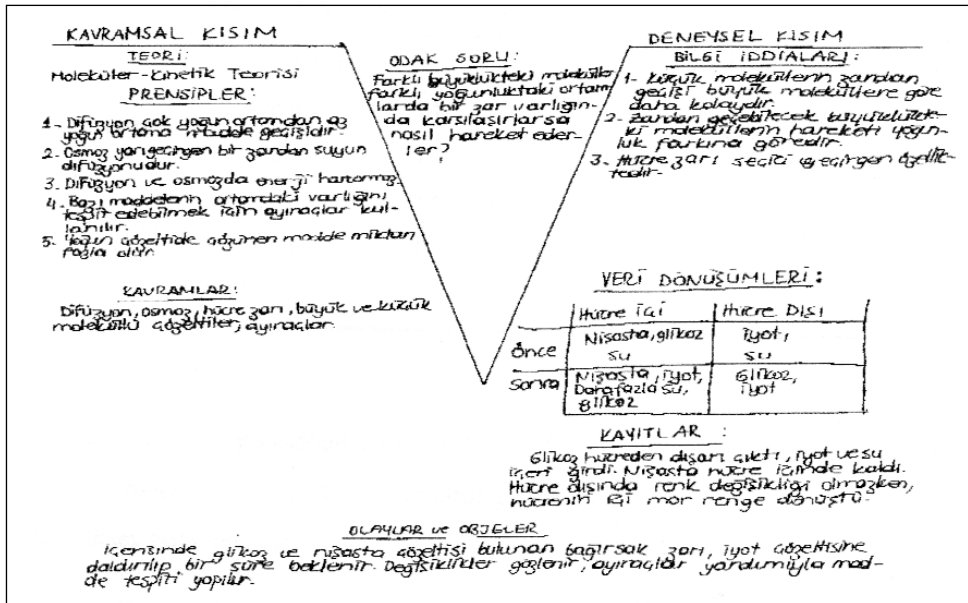 KAVRAMSAL KISIM
TEORİ:
Moleküler-Kinetik Teorisi
PRENSİPLER:
1- Difüzyon çok yoğun ortamdan az
yoğun ortama madde geçişidir.
2- Osmoz yarıgeçirgen bir zardan suyun
difüzyonudur.
3- Difüzyon ve osmozda enerji harcanmaz.
4- Bazı maddelerin ortamdaki varlığını
tespit edebilmek için ayıraçlar kul-
lanılır.
5- Yoğun çözeltide çözünen madde miktarı
fazla olur.
KAVRAMLAR:
Difüzyon, osmoz, hücre zarı, büyük ve küçük
moleküllü çözeltiler, ayıraçlar.
ODAK SORU:
Farklı büyüklükteki moleküller
farklı yoğunluktaki ortam
larda bir zar varlığın-
da karşılaşırlarsa
nasıl hareket eder-
ler?
DENEYSEL KISIM
BİLGİ İDDİALARI:
1- Küçük moleküllerin zardan
geçişi büyük moleküllere göre
daha kolaydır.
2- Zardan geçebilecek büyüklükte-
ki moleküllerin hareketi yoğun-
luk farkına göredir.
3- Hücre zarı seçici geçirgen özellik-
tedir.
VERİ DÖNÜŞÜMLERİ:
Hücre İçi Hücre Dışı
Önce Nişasta, glikoz su İyot, su
Sonra Nişasta, iyot, Daha fazla su, glikoz Glikoz, iyot
KAYITLAR:
Glikoz hücreden dışarı çıktı, iyot ve su
içeri girdi. Nişasta hücre içinde kaldı.
Hücre dışında renk değişikliği olmazken,
hücrenin içi mor renge dönüştü.
OLAYLAR ve OBJELER
İçerisinde glikoz ve nişasta çözeltisi bulunan bağırsak zarı, iyot çözeltisine
daldırılıp bir süre beklenir. Değişiklikler gözlenir, ayıraçlar yardımıyla mad-
de tespiti yapılır.